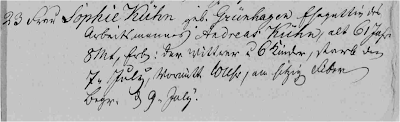 23 Frau Sophie Kühn geb. Grünhagen Ehegattin des
Arbeitsmannes Andreas Kühn, alt 61 Jahr
8 Mt, Erb: der Wittwer u 6 Kinder, starb den
7. July, Vormitt Uhr, am hitzig Fieber
Begr. d 9. July.